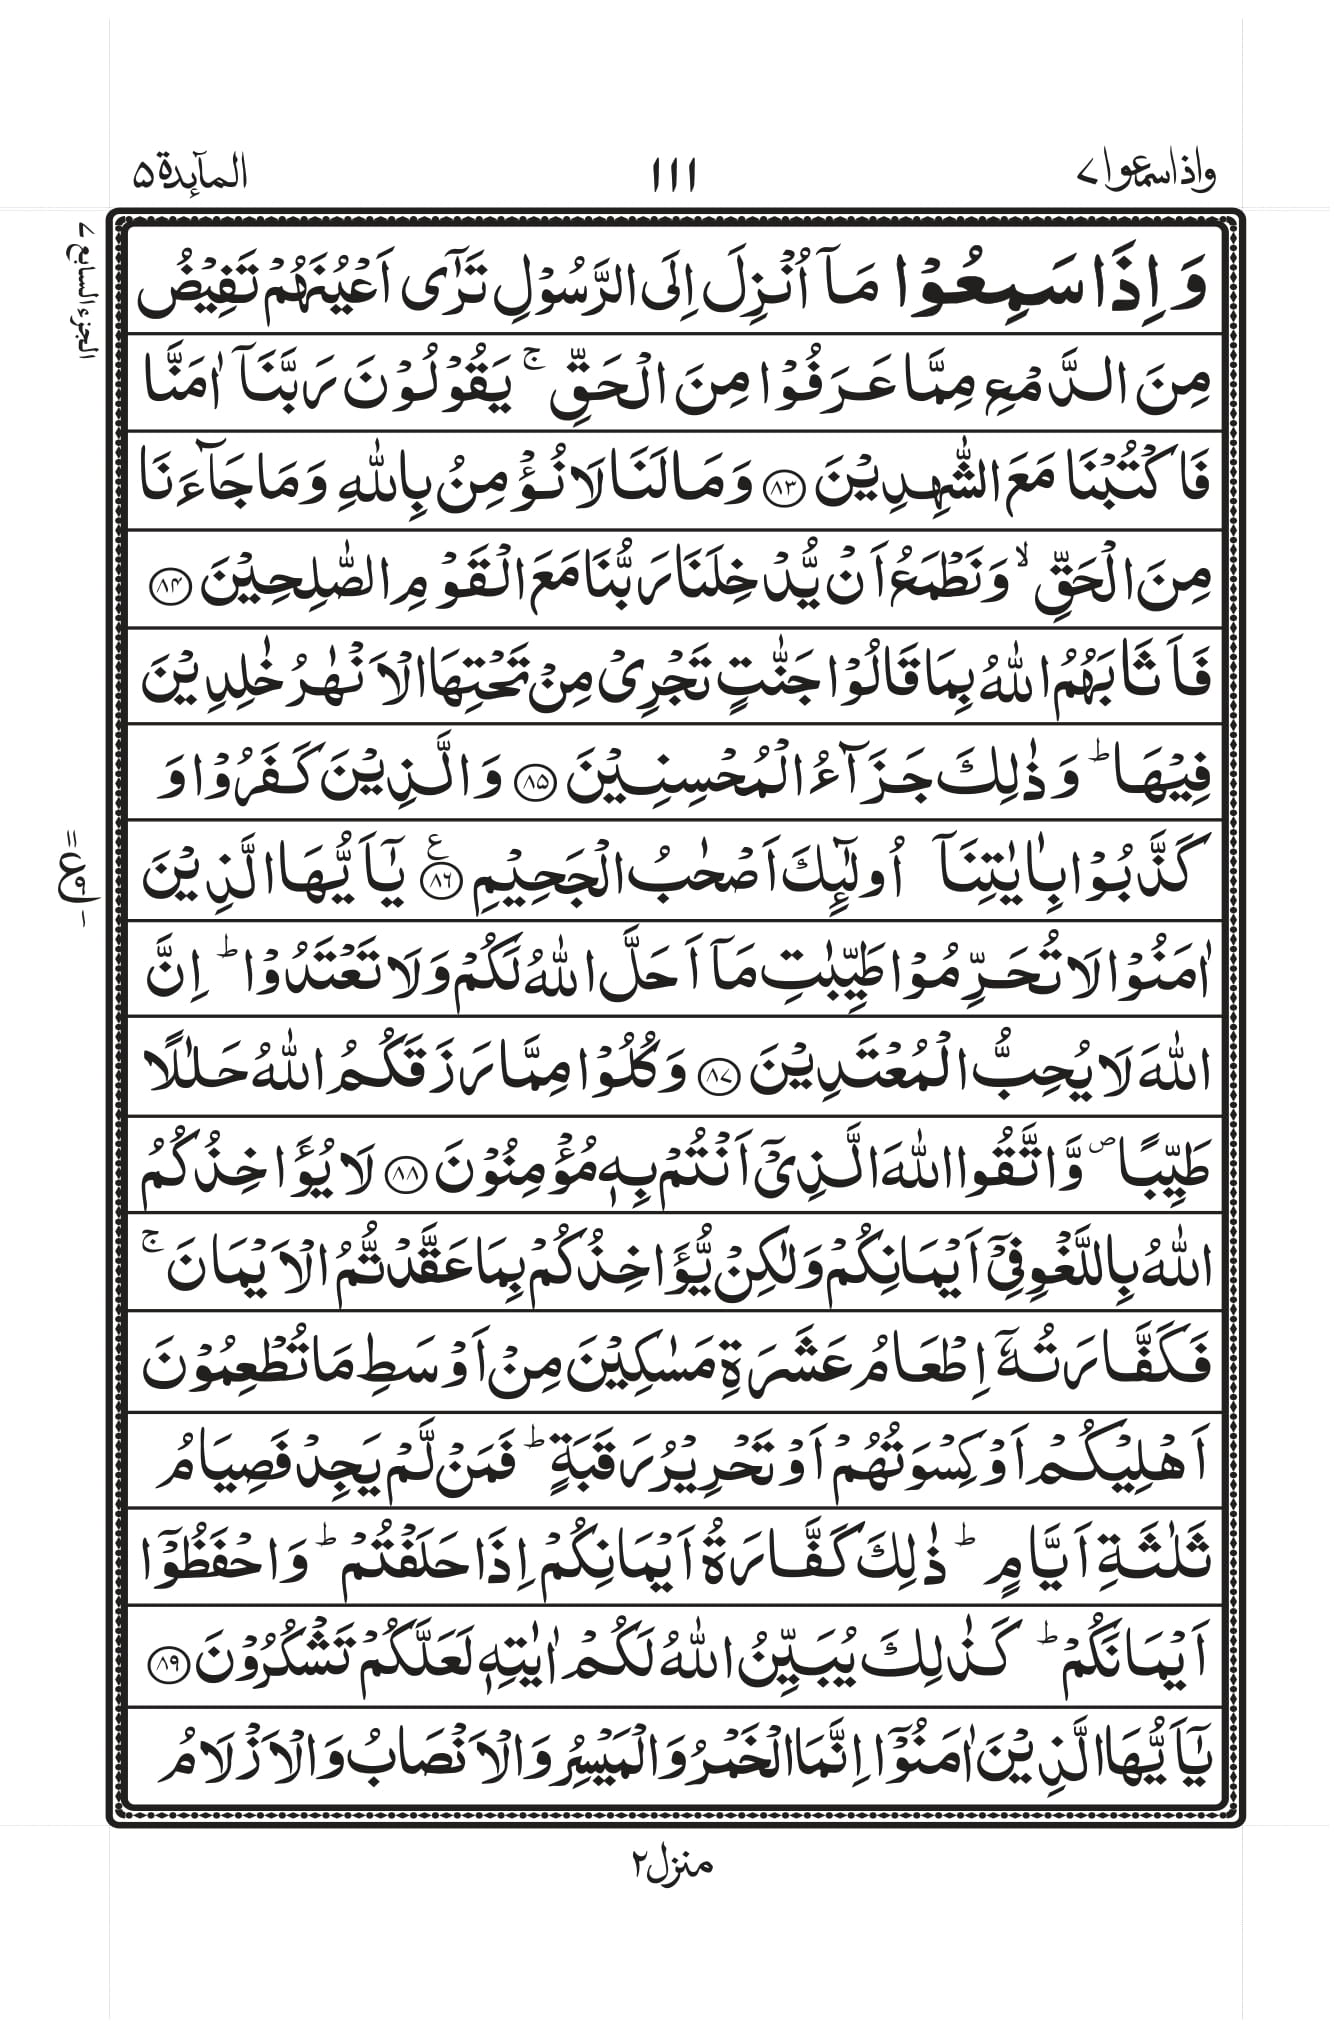 واذاسمعوا ٧
١١١
المآىِٕدة ۵
الجزء السابع ٧
وَ اِذَا سَمِعُوْا مَاۤ اُنْزِلَ اِلَى الرَّسُوْلِ تَرٰۤى اَعْيُنَهُمْ تَفِيْضُ
مِنَ الدَّمْعِ مِمَّا عَرَفُوْا مِنَ الْحَقِّ ۚ يَقُوْلُوْنَ رَبَّنَاۤ اٰمَنَّا
فَاكْتُبْنَا مَعَ الشّٰهِدِيْنَ ﴿۸۳﴾ وَمَا لَنَا لَا نُؤْمِنُ بِاللّٰهِ وَمَا جَآءَنَا
مِنَ الْحَقِّ ۙ وَنَطْمَعُ اَنْ يُّدْخِلَنَا رَبُّنَا مَعَ الْقَوْمِ الصّٰلِحِيْنَ ﴿۸۴﴾
فَاَثَابَهُمُ اللّٰهُ بِمَا قَالُوْا جَنّٰتٍ تَجْرِىْ مِنْ تَحْتِهَا الْاَنْهٰرُ خٰلِدِيْنَ
فِيْهَا ؕ وَذٰلِكَ جَزَآءُ الْمُحْسِنِيْنَ ﴿۸۵﴾ وَالَّذِيْنَ كَفَرُوْا وَ
كَذَّبُوْا بِاٰيٰتِنَاۤ اُولٰٓىِٕكَ اَصْحٰبُ الْجَحِيْمِ ﴿۸۶﴾ ع يٰۤاَيُّهَا الَّذِيْنَ
اٰمَنُوْا لَا تُحَرِّمُوْا طَيِّبٰتِ مَاۤ اَحَلَّ اللّٰهُ لَكُمْ وَلَا تَعْتَدُوْا ؕ اِنَّ
اللّٰهَ لَا يُحِبُّ الْمُعْتَدِيْنَ ﴿۸۷﴾ وَكُلُوْا مِمَّا رَزَقَكُمُ اللّٰهُ حَلٰلًا
طَيِّبًا ۪ وَّاتَّقُوا اللّٰهَ الَّذِىْۤ اَنْتُمْ بِهٖ مُؤْمِنُوْنَ ﴿۸۸﴾ لَا يُؤَاخِذُكُمُ
اللّٰهُ بِاللَّغْوِ فِىْۤ اَيْمَانِكُمْ وَلٰكِنْ يُّؤَاخِذُكُمْ بِمَا عَقَّدْتُّمُ الْاَيْمَانَ ۚ
فَكَفَّارَتُهٗۤ اِطْعَامُ عَشَرَةِ مَسٰكِيْنَ مِنْ اَوْسَطِ مَا تُطْعِمُوْنَ
اَهْلِيْكُمْ اَوْ كِسْوَتُهُمْ اَوْ تَحْرِيْرُ رَقَبَةٍ ؕ فَمَنْ لَّمْ يَجِدْ فَصِيَامُ
ثَلٰثَةِ اَيَّامٍ ؕ ذٰلِكَ كَفَّارَةُ اَيْمَانِكُمْ اِذَا حَلَفْتُمْ ؕ وَاحْفَظُوْۤا
اَيْمَانَكُمْ ؕ كَذٰلِكَ يُبَيِّنُ اللّٰهُ لَكُمْ اٰيٰتِهٖ لَعَلَّكُمْ تَشْكُرُوْنَ ﴿۸۹﴾
يٰۤاَيُّهَا الَّذِيْنَ اٰمَنُوْۤا اِنَّمَا الْخَمْرُ وَالْمَيْسِرُ وَالْاَنْصَابُ وَالْاَزْلَامُ
منزل ٢